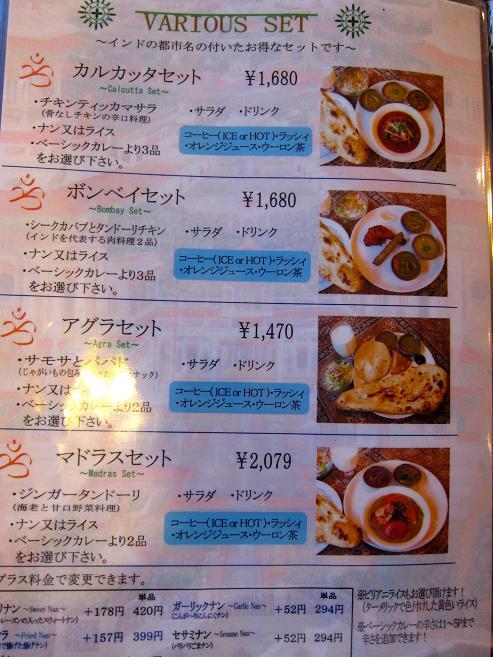 VARIOUS SET
～インドの都市名の付いたお得なセットです～
カルカッタセット ¥1,680
～Calcutta Set～
・チキンティッカマサラ ・サラダ ・ドリンク
(骨なしチキンの辛口料理)
・ナン又はライス
・ベーシックカレーより3品
をお選び下さい。
コーヒー(ICE or HOT)・ラッシィ
・オレンジジュース・ウーロン茶
ボンベイセット ¥1,680
～Bombay Set～
・シークカバブとタンドーリチキン ・サラダ ・ドリンク
(インドを代表する肉料理2品)
・ナン又はライス
・ベーシックカレーより3品
をお選び下さい。
コーヒー(ICE or HOT)・ラッシィ
・オレンジジュース・ウーロン茶
アグラセット ¥1,470
～Agra Set～
・サモサとパパド ・サラダ ・ドリンク
(じゃがいもの包み
ナック)
・ナン又は
・ベーシックカレーより2品
をお選び下さい。
コーヒー(ICE or HOT)・ラッシィ
・オレンジジュース・ウーロン茶
マドラスセット ¥2,079
～Madras Set～
・ジンガータンドーリ ・サラダ ・ドリンク
(海老と甘口野菜料理)
・ナン又はライス
・ベーシックカレーより2品
をお選び下さい。
コーヒー(ICE or HOT)・ラッシィ
・オレンジジュース・ウーロン茶
プラス料金で変更できます。
単品 単品
ナン ～Sweet Nan～ +178円 420円 ガーリックナン ～Garlic Nan～ +52円 294円
レーズンの入ったスウィートナン) (こんがりにんにくナン)
ラ ～Fried Nan～ +157円 399円 セサミナン ～Sesame Nan～ +52円 294円
で揚げた揚げナン) (パリパリごまナン)
※ビリアニライスもお選び頂けます!
(ターメリックで色付けした黄色いライス)
※ベーシックカレーの辛さは1～5Pまで
辛さを追加できます!